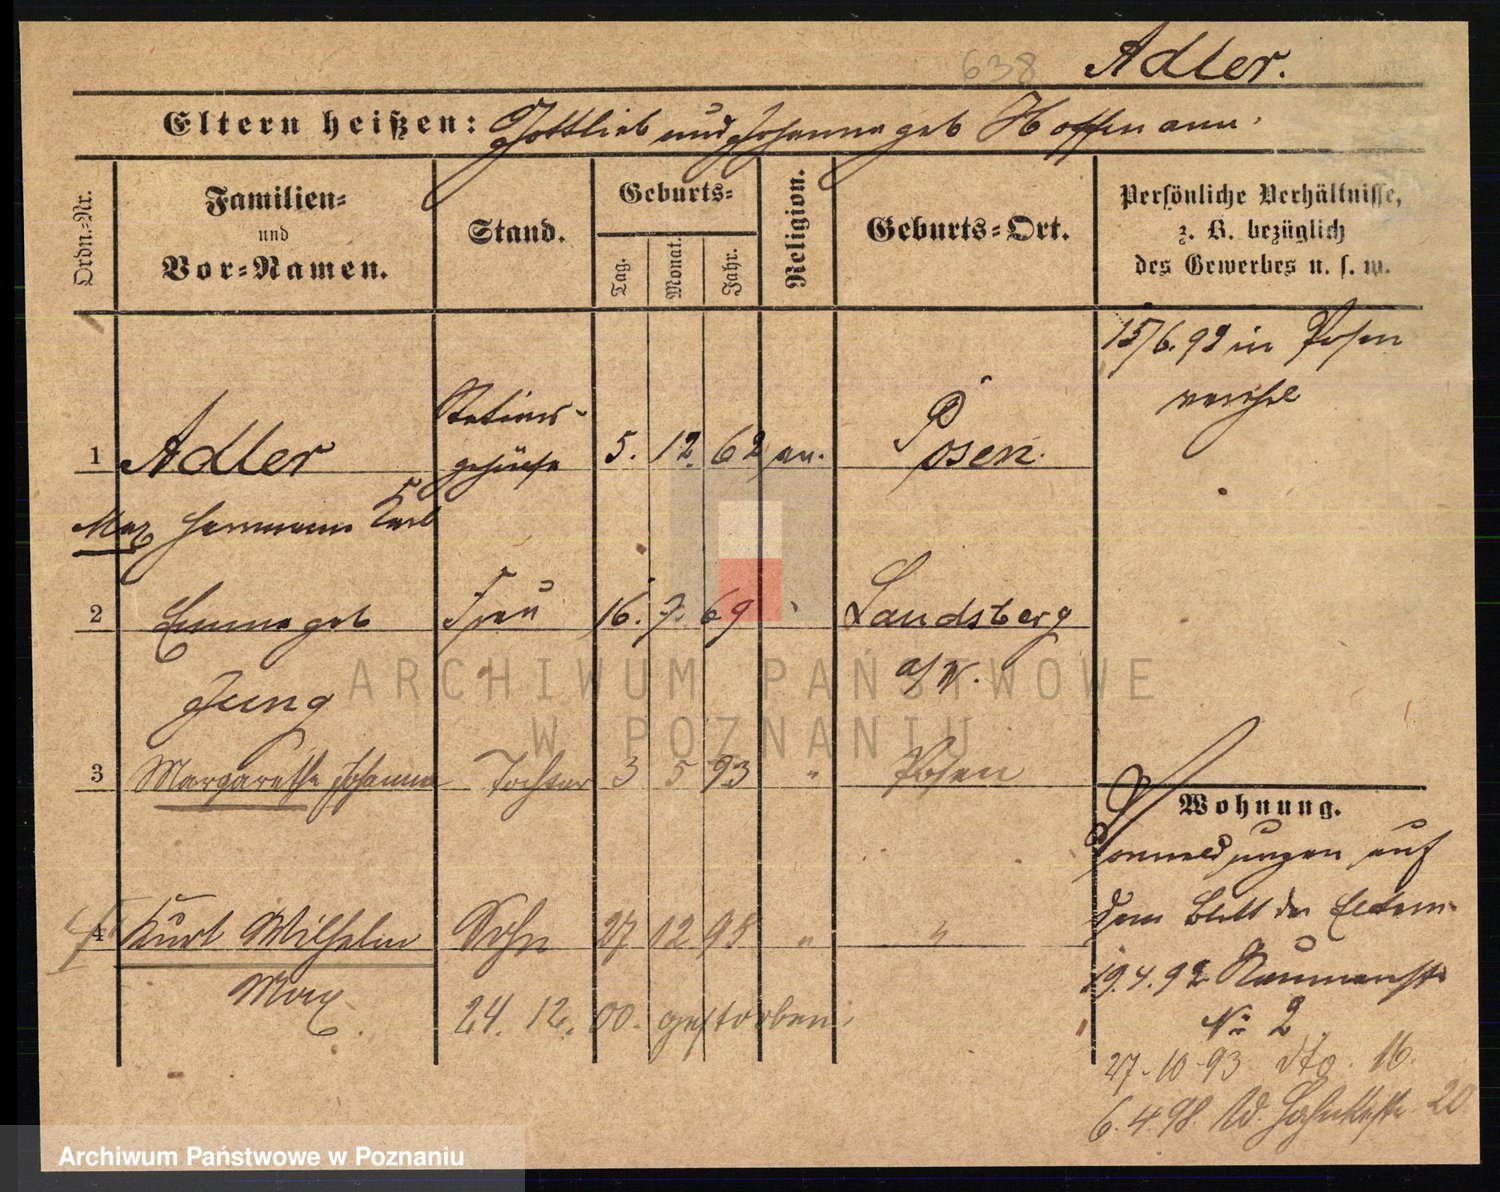 638 Adler.
Eltern heißen: Gottlieb und Johanna geb Hoffmann.
Ordn.-Nr.
Familien-
und
Vor-Namen.
Stand.
Geburts-
Tag.
Monat.
Jahr.
Religion.
Geburts-Ort.
Persönliche Verhältnisse,
z. B. bezüglich
des Gewerbes u. s. w.
15/6.92 in Posen
1 Adler Stations- 5. 12. 62 ev. Posen.
Max Hermann Karl
2 Emma geb Frau 16. 7. 69 " Landsberg
Jung a/W.
3 Margarethe Johanna Tochter 3 5 93 " Posen
4 Kurt Wilhelm Sohn 27 12 95 " "
Max.
24. 12. 00. gestorben.
Wohnung.
Vormeldungen auf
dem Blatt der Eltern.
19.4.92 Naumannstr
No 2.
27.10.93 dto. 16.
6.4.98. 20
ARCHIWUM PAŃSTWOWE
W POZNANIU
Archiwum Państwowe w Poznaniu